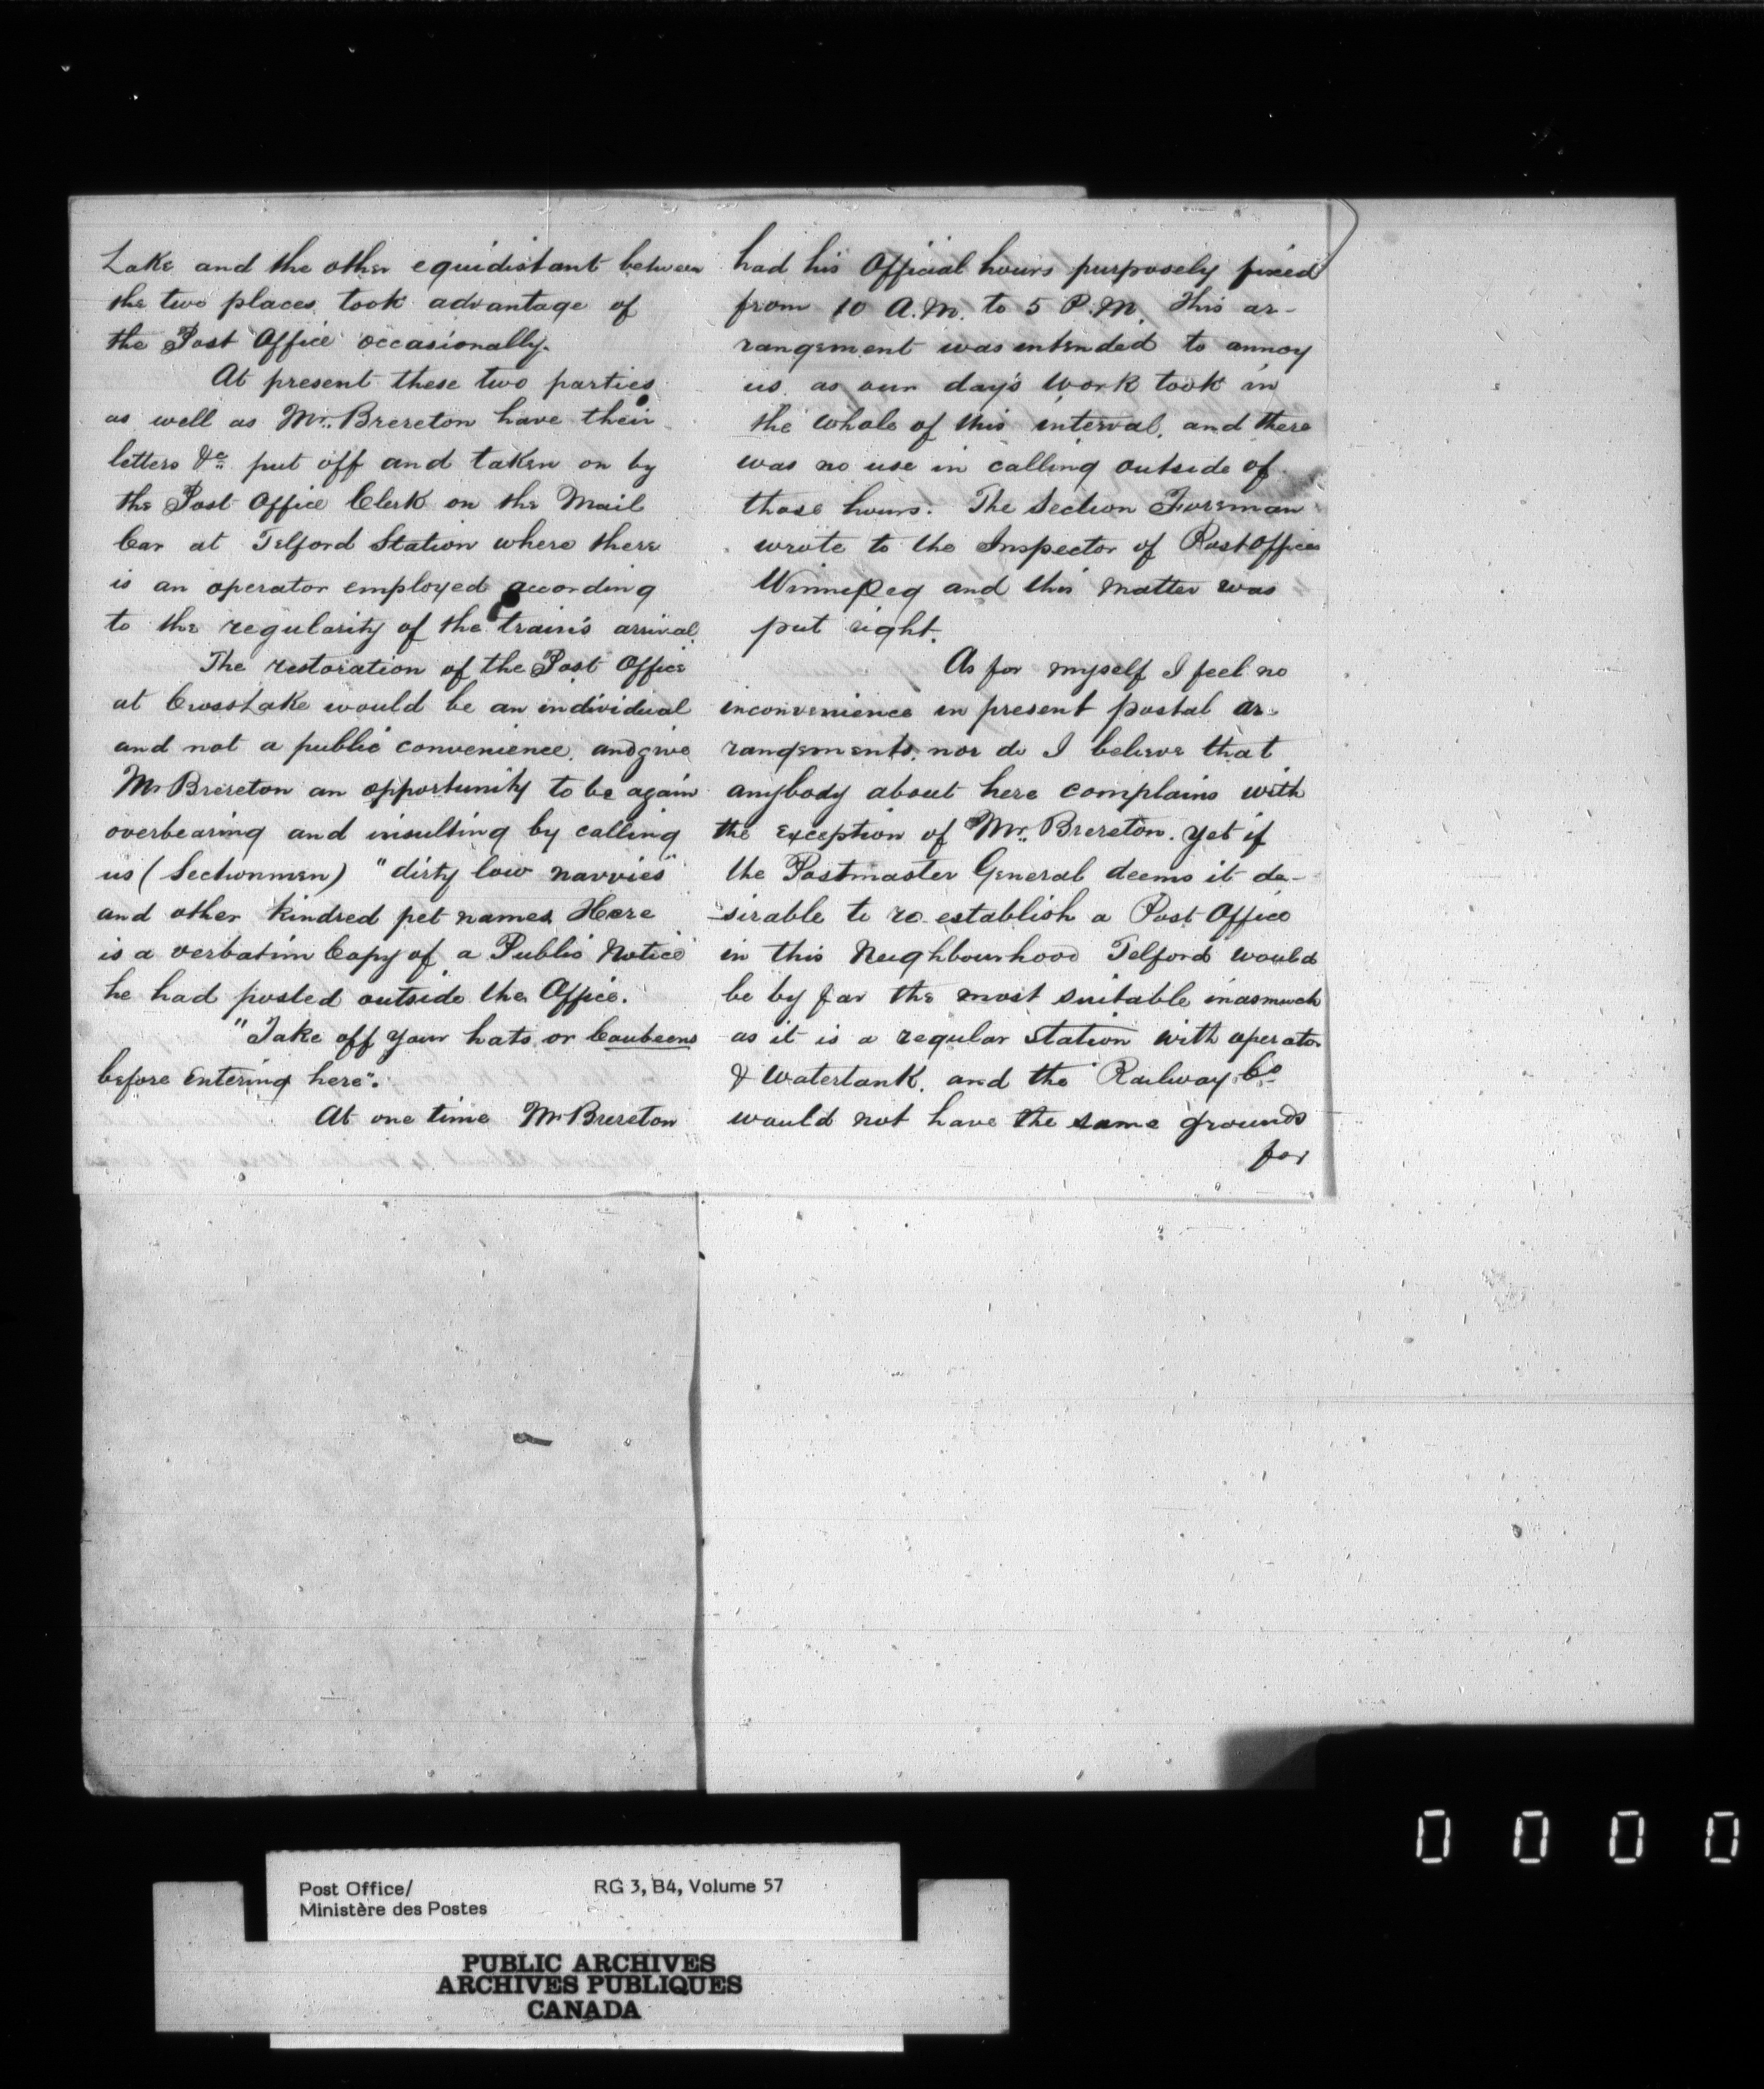 Lake and the other equidistant between
the two places, took advantage of
the Post Office occasionally.
At present these two parties
as well as Mr. Brereton have their
letters &c. put off and taken on by
the Post Office Clerk on the Mail
Car at Telford Station where there
is an operator employed according
to the regularity of the train's arrival.
The restoration of the Post Office
at Cross Lake would be an individual
and not a public convenience, and give
Mr Brereton an opportunity to be again
overbearing and insulting by calling
us (Sectionmen) "dirty low navvies"
and other kindred pet names. Here
is a verbatim Copy of a Public Notice
he had posted outside the Office.
"Take off your hats or Caubeens
before Entering here".
At one time Mr Brereton
had his Official hours purposely fixed
from 10 A.M. to 5 P.M. This ar-
rangement was intended to annoy
us as our day's work took in
the whole of this interval, and there
was no use in calling outside of
those hours. The Section Foreman
wrote to the Inspector of Post Offices
Winnipeg and this matter was
put right.
As for myself I feel no
inconvenience in present postal ar-
rangements, nor do I believe that
anybody about here complains with
the exception of Mr. Brereton. Yet if
the Postmaster General deems it de-
-sirable to re-establish a Post Office
in this Neighbourhood Telford would
be by far the most suitable inasmuch
as it is a regular Station with operator
& Watertank, and the Railway Co
would not have the same grounds
for
Post Office/ RG 3, B4, Volume 57
Ministère des Postes
PUBLIC ARCHIVES
ARCHIVES PUBLIQUES
CANADA
0 0 0 0